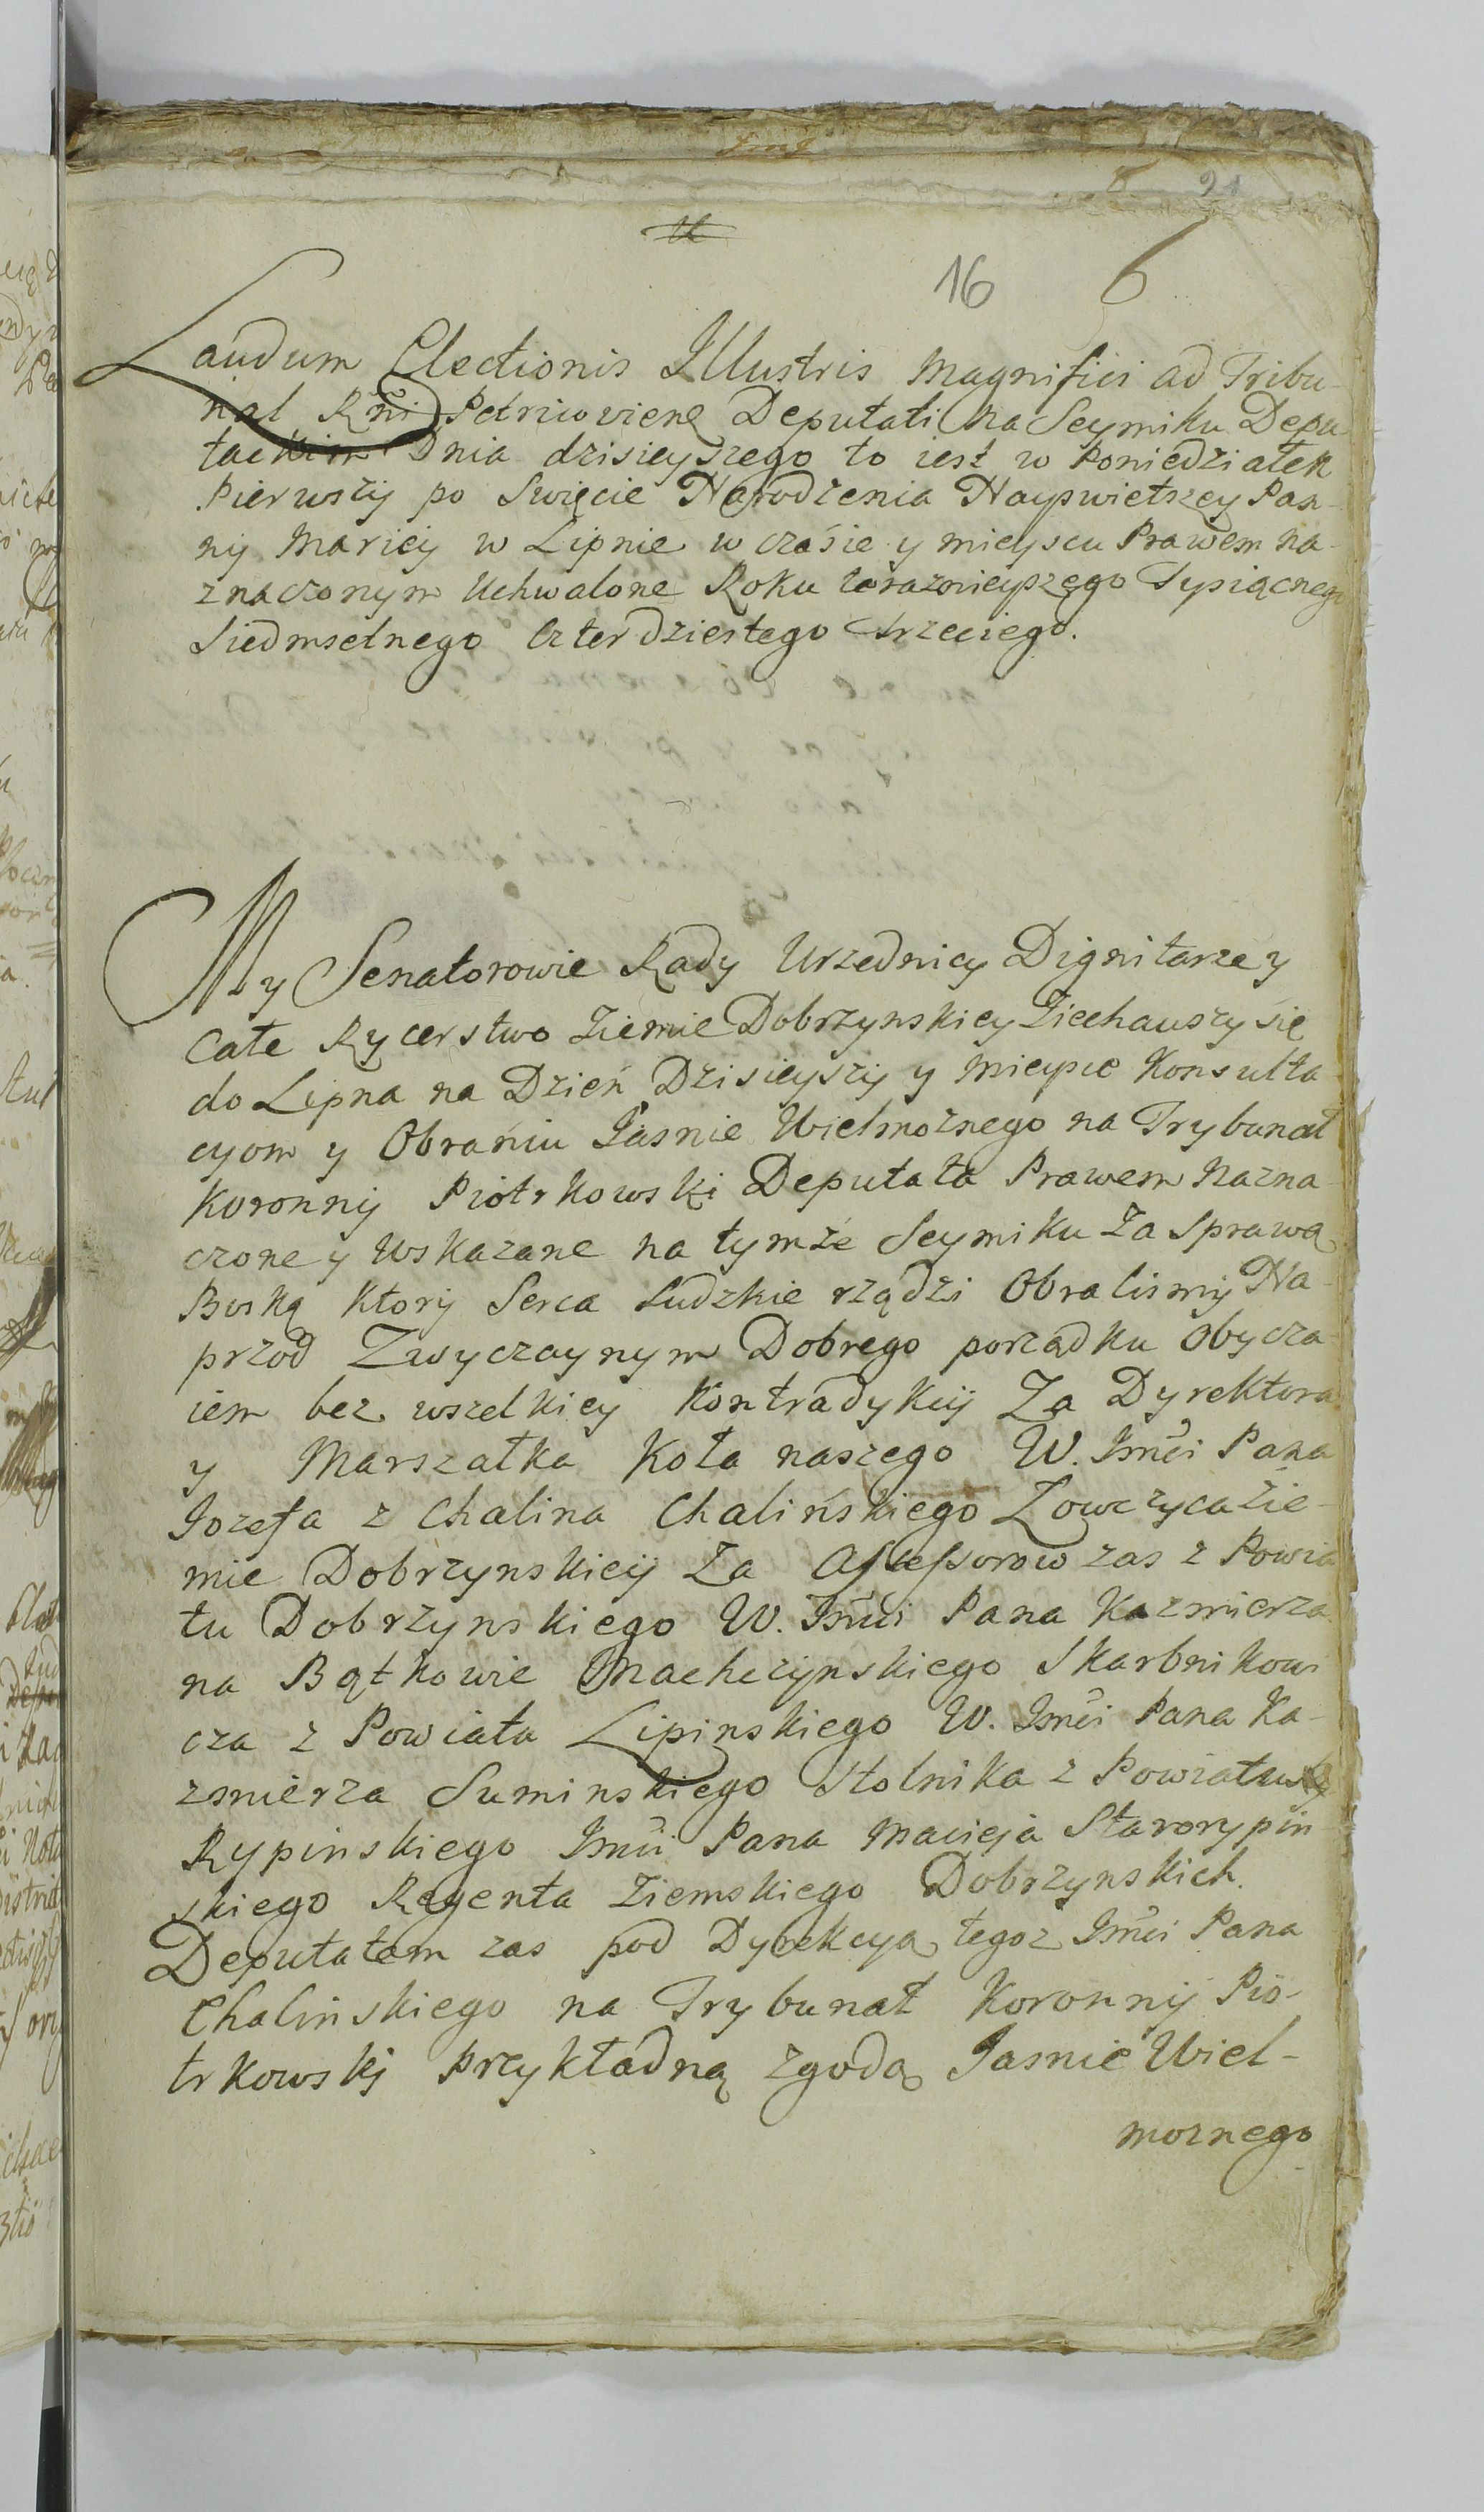 8 21
16 6
Laudum Electionis Illustris Magnifici ad Tribu-
nal Rñi Petricoviens Deputati Na Seymiku Depu-
tackim Dnia dzisieyszego to iest w Poniedziałek
Pierwszÿ po Swięcie Narodzenia Nayswietszey Pan-
nÿ Mariey w Lipnie w czasie y mieyscu Prawem na-
znaczonym Uchwalone Roku teraznieyszego Tysiącnego
Siedmsetnego Czterdziestego Trzeciego.
My Senatorowie Rady Urzednicy Dignitarze y
Całe Rycerstwo Ziemie Dobrzynskiey Ziechawszy się
do Lipna na Dzień Dzisieyszÿ y mieysce Konsulta-
cyom y Obraniu Jasnie Wielmoznego na Trybunał
Koronnÿ Piotrkowski Deputata Prawem Nazna-
czone y Wskazane na tymże Seymiku Za Sprawą
Boską Ktorÿ Serca Ludzkie rządzi Obralismÿ Na-
przod Zwyczaynym Dobrego porządku Obycza-
iem bez wszelkiey Kontradykcÿ Za Dyrektora
y Marszałka Koła naszego W. Jmći Pana
Jozefa z Chalina Chalińskiego Łowczyca Zie-
mie Dobrzynskieÿ Za Assessorow zas z Powia
tu Dobrzynskiego W. Jmći Pana Kazmierza
na Bątkowie Machczÿnskiego Skarbnikowi
cza z Powiatu Lipinskiego W. Jmći Pana Ka-
zmierza Suminskiego Stolnika z Powiatu
Rypinskiego Jmći Pana Macieja Starorypin-
skiego Regenta Ziemskiego Dobrzynskich.
Deputatem zas pod Dyrekcyą tegoz Jmći Pana
Chalińskiego na Trybunał Koronnÿ Pio-
trkowskÿ przykładną zgodą Jasnie Wiel-
moznego